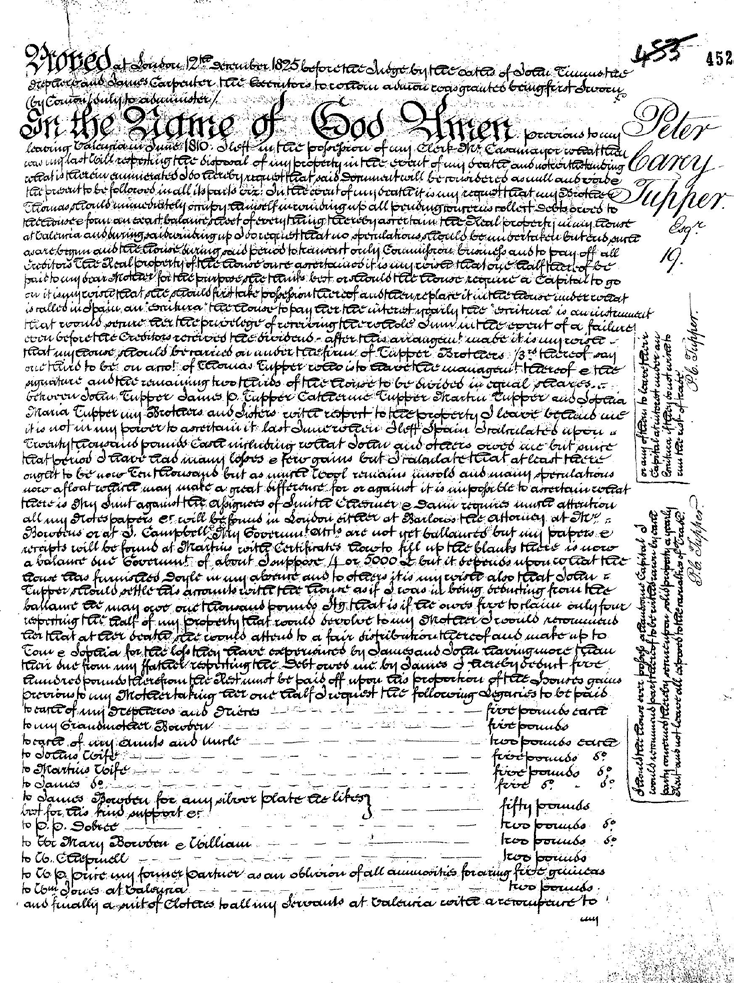 453 452
Proved at London 12th December 1825 before the Judge by the oaths of John Tummus the
Nephew and James Carpenter the Executors to whom admon was granted being first sworn
(by Common) duly to administer /.
In the Name of God Amen previous to my
Peter Carey Tupper. Esqr 19.
leaving Valencia in June 1810. I left in the possession of my Clerk Mr. Casamayor what then
was my last Will respecting the disposal of my property in the event of my death and notwithstanding
what is therein enumerated I do hereby request that said Document will be considered as null and void &
the present to be followed in all its parts viz: In the event of my death it is my request that my Brother
Thomas should immediately occupy himself in winding up all pending concerns collect Debts owed to
the house & form an exact ballance sheet of every thing thereby ascertain the Real property in my house
at Valencia and during said winding up I do request that no speculations should be undertaken but end such
as are begun and the house during said period to transact only Commission business and to pay off all
Creditors The Real property of the house once ascertained it is my wish that one half thereof be
paid to my dear Mother for the purpose she thinks best or should the house require a Capital to go
on it is my wish that she should first take possession thereof and then replace it in the house under what
is called in Spain an "Escritura" the house to pay her the interest yearly the "Escritura" is an instrument
that would secure her the privilege of receiving the whole Sum in the event of a failure
even before the Creditors received the dividend - after this arrangemt. made it is my wish -
that my house should be carried on under the firm of Tupper Brothers 1/3rd thereof say
one third to be on acct. of Thomas Tupper who is to have the managemt. thereof & the
signature and the remaining two thirds of the house to be divided in equal shares -
between John Tupper James P. Tupper Catherine Tupper Martin Tupper and Sophia
Maria Tupper my Brothers and Sisters with respect to the property I leave behind me
it is not in my power to ascertain it last June when I left Spain I calculated upon -
Twenty thousand pounds Cash including what John and others owed me but since
that period I have had many losses & few gains but I calculate that at least there
ought to be now Ten thousand but as much Wool remains unsold and many speculations
now afloat which may make a great difference for or against it is impossible to ascertain what
there is My Suit against the Assignees of Smith & Dann requires much attention
all my Notes papers &c. will be found in London either at Barlows the Attorney at Mr.
Bowdens or at J. Campbell My Governmt. Accts. are not yet ballanced but my papers &
receipts will be found at Martins with Certificates how to fill up the blanks there is now
a balance due Governmt. of about I suppose 4 or 5000 £ but it depends upon what the
house has furnished Doyle in my absence and to others it is my wish also that John -
Tupper should settle his accounts with the house as if I was in being deducting from the
ballance he may owe one thousand pounds Stg. that is if he owes five to claim only four
respecting the half of my property that would devolve to my Mother I would recommend
her that at her death she would attend to a fair distribution thereof and make up to
Tom & Sophia for the loss they have experienced by James and John having more than
their due from my father respecting the Debt owed me by James I hereby deduct five
hundred pounds therefrom the Rest must be paid off upon his proportion of the houses gains
Previous to my Mother taking her one half I request the following Legacies to be paid
to each of my Nephews and Nieces five pounds each
to my Grandmother Bowden five pounds
to each of my Aunts and Uncle two pounds each
to Johns Wife five pounds do
to Martins Wife five pounds do
to James do five do do
to James Bowden for any silver plate he likes
best for his kind support &c. fifty pounds
to P. P. Dobree two pounds do
to Mary Bowden & William two pounds do
to W. Chepmell two pounds
to W P Price my former Partner as an oblivion of all animosities for a ring five guineas
to Wm Jones at Valencia two pounds.
and finally a suit of Clothes to all my Servants at Valencia with a recompence to
my
or any of them to leave their
Capital at interest under an
Escritura if they do not wish to
run the risk of trade.
P. C. Tupper.
Should the house ever possess a handsome Capital I
would recommend part thereof to be withdrawn by each
party concerned thereby secure upon solid property a yearly
Rent and not leave all exposed to the casualties of Trade.
P. C. Tupper